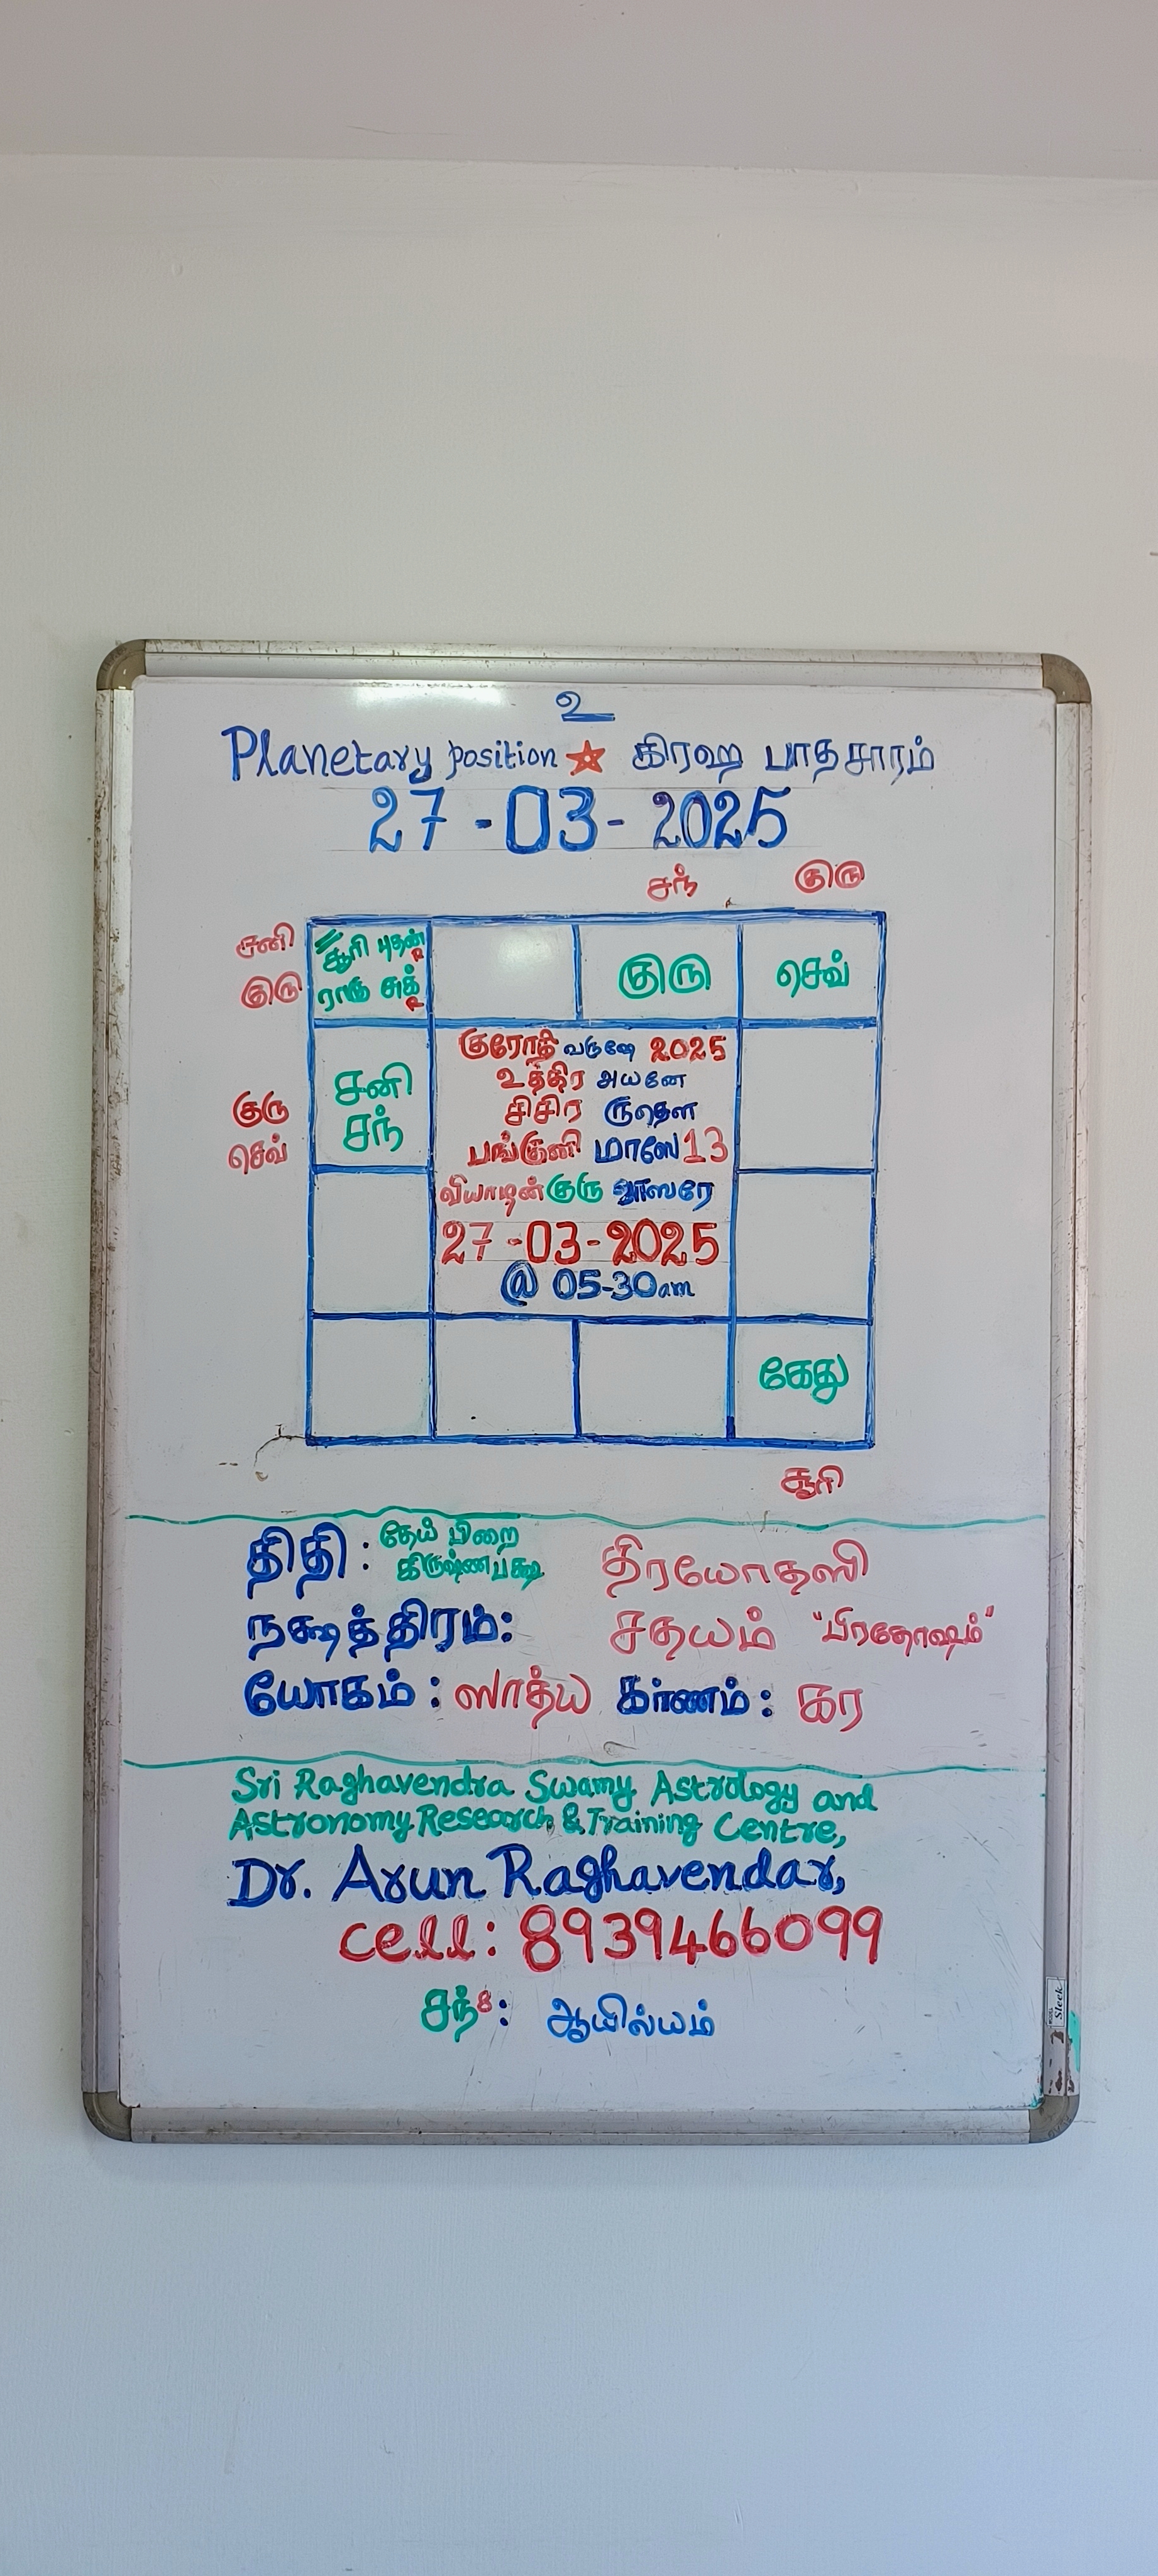 உ
Planetary position கிரஹ பாதசாரம்
27-03-2025
சந் குரு
சனி சூரி புதன் R
குரு ராகு சுக் R குரு செவ்
குரு சனி
செவ் சந்
குரோதி வருஷே 2025
உத்திர அயனே
சிசிர ருதௌ
பங்குனி மாஸே 13
வியாழன் குரு வாஸரே
27-03-2025
@ 05-30am
கேது
சூரி
திதி : தேய் பிறை கிருஷ்ணபக்ஷ திரயோதஸி
நக்ஷத்திரம்: சதயம் "பிரதோஷம்"
யோகம் : ஸாத்ய கர்ணம் : கர
Sri Raghavendra Swamy Astrology and
Astronomy Research & Training Centre,
Dr. Arun Raghavendar,
cell: 8939466099
சந்8: ஆயில்யம்
Sleek